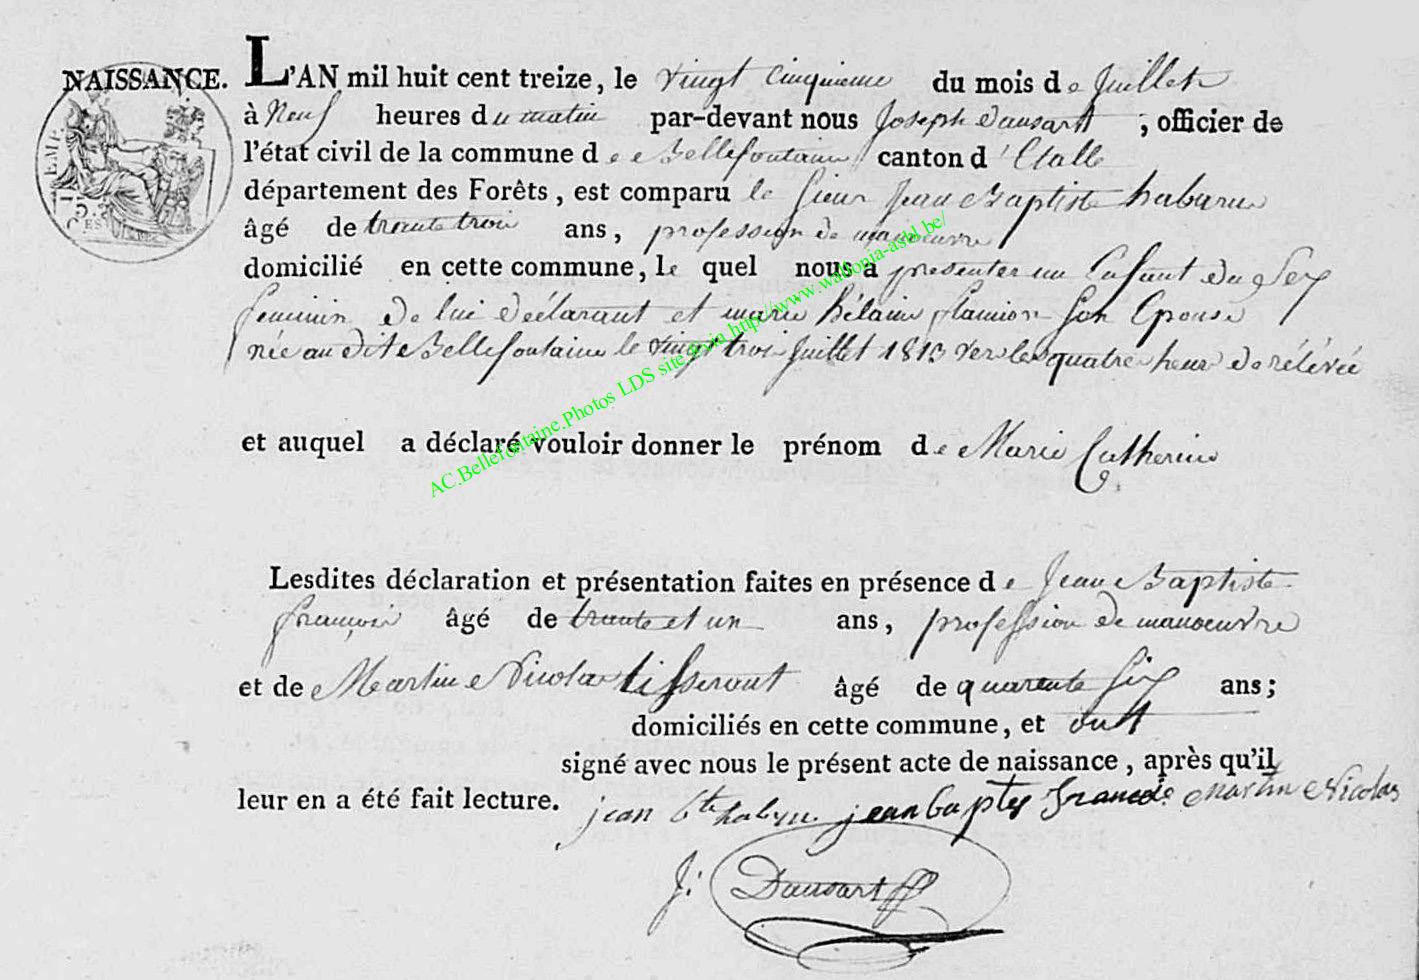 NAISSANCE.
L'AN mil huit cent treize, le vingt cinquieme du mois de Juillet
à Neuf heures du matin par-devant nous Joseph Dausart, officier de
l'état civil de la commune de Bellefontaine canton d'Etalle
département des Forêts, est comparu le sieur Jean Baptiste habaru
âgé de trente trois ans, profession de manoeuvre
domicilié en cette commune, lequel nous a presenter un Enfant du sex
feminin de lui déclarant et marie hélaine flamion son Epouse
née au dit Bellefontaine le vingt trois Juillet 1813 vers les quatre heur de rélévée
et auquel a déclaré vouloir donner le prénom de Marie Catherine
Lesdites déclaration et présentation faites en présence de Jean Baptiste
françois âgé de trente et un ans, profession de manoeuvre
et de Martin Nicolas âgé de quarente six ans;
domiciliés en cette commune, et ont
signé avec nous le présent acte de naissance, après qu'il
leur en a été fait lecture.
jean bte jean baptes francois martin Nicolas
J: Dausart
TIEMP
75
CES
AC.Bellefontaine.Photos LDS site via http://www.wallonia-asbl.be/